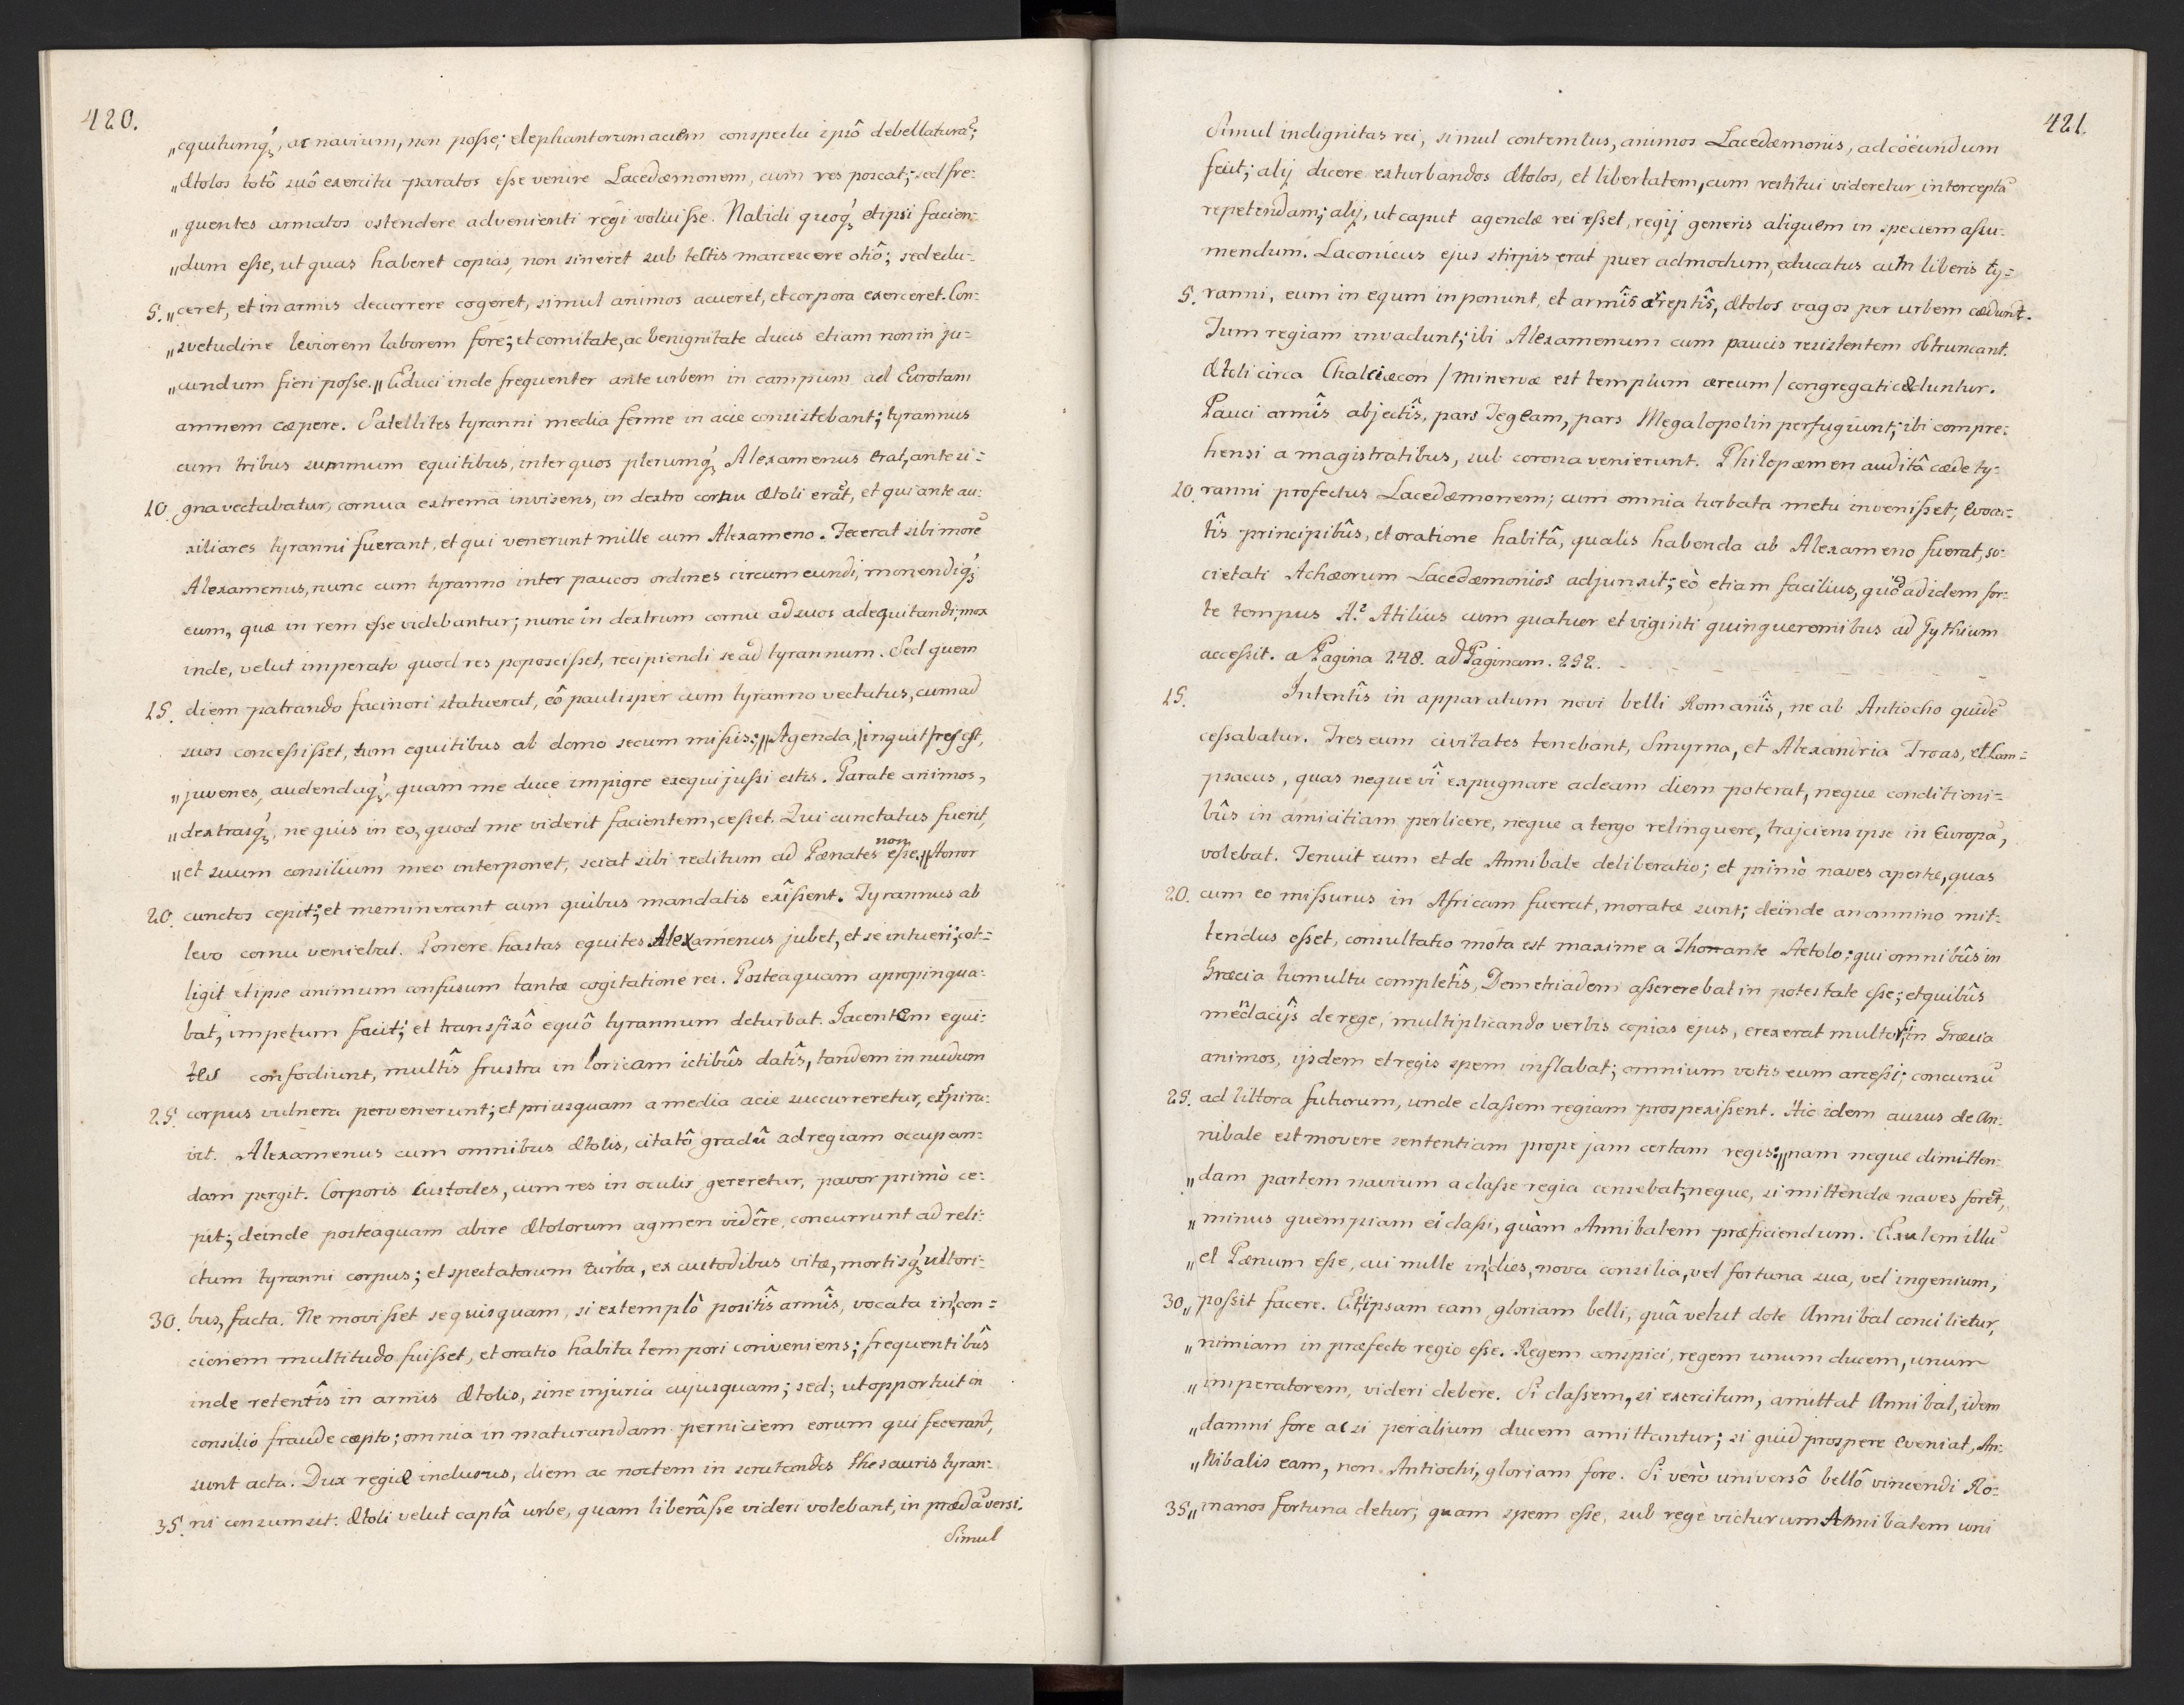 420.
„equitumq́ꝫ, ac navium, non posse; elephantorum aciem conspectu ipsô debellaturã;
„Ætolos totô suô exercitu paratos esse venire Lacedæmonem, cum res poscat; sed fre-
„quentes armatos ostendere advenienti regi voluisse. Nabidi quoq́ꝫ et ipsi facien-
„dum esse, ut quas haberet copias, non sineret sub tectis marcescere otiô; sed edu-
5. „ceret, et in armis decurrere cogeret, simul animos acueret, et corpora exerceret. Con-
„svetudine leviorem laborem fore; et comitate, ac benignitate ducis etiam non in ju-
„cundum fieri posse.„ Educi inde frequenter ante urbem in campum ad Eurotam
amnem cæpere. Satellites tyranni media ferme in acie consistebant; tyrannus
cum tribus summum equitibus, inter quos plerumq́ꝫ Alexamenus erat, ante si-
10. gna vectabatur, cornua extrema invisens, in dextro cornu Ætoli erãt, et qui ante au-
xiliares tyranni fuerant, et qui venerunt mille cum Alexameno. Fecerat sibi morẽ
Alexamenus, nunc cum tyranno inter paucos ordines circumeundi, monendiq́ꝫ
eum, quæ in rem esse videbantur; nunc in dextrum cornu ad suos adequitandi; mox
inde, velut imperato quod res poposcisset, recipiendi se ad tyrannum. Sed quem
15. diem patrando facinori statuerat, eô paulisper cum tyranno vectatus, cum ad
suos concessisset, tum equitibus ab domo secum missis: „Agenda, /inquit/ res est,
„juvenes, audendaq́ꝫ, quam me duce impigre exequi jussi estis. Parate animos,
„dextrasq́ꝫ, ne quis in eo, quod me viderit facientem, cesset. Qui cunctatus fuerit,
„et suum consilium meo interponet, sciat sibi reditum ad Pænates non esse.„ Horror
20. cunctos cepit; et meminerant cum quibus mandatis exîssent. Tyrannus ab
levo cornu veniebat. Ponere hastas equites Alexamenus jubet, et se intueri; col-
ligit et ipse animum confusum tantæ cogitatione rei. Posteaquam apropinqua-
bat, impetum facit; et transfixô equô tyrannum deturbat. Jacentem equi-
tes confodiunt, multîs frustra in loricam ictibûs datîs, tandem in nudum
25. corpus vulnera pervenerunt; et priusquam a media acie succurreretur, expira-
vit. Alexamenus cum omnibus Ætolis, citatô gradû ad regiam occupan-
dam pergit. Corporis custodes, cum res in oculis gereretur, pavor primò ce-
pit; deinde posteaquam abire Ætolorum agmen vidêre, concurrunt ad reli-
ctum tyranni corpus; et spectatorum turba, ex custodibus vitæ, mortisq́ꝫ ultori-
30. bus, facta. Ne movisset se quisquam, si extemplò positîs armîs, vocata in con-
cionem multitudo fuisset, et oratio habita tempori conveniens; frequentibûs
inde retentîs in armis Ætolis, sine injuria cujusquam; sed, ut opportuit in
consilio fraude cæpto; omnia in maturandam perniciem eorum qui fecerant,
sunt acta. Dux regiæ inclusus, diem ac noctem in scrutandis thesauris tyran-
35. ni consumsit: Ætoli velut captâ urbe, quam liberâsse videri volebant, in prædã versi.
Simul
421.
Simul indignitas rei, simul contemtus, animos Lacedæmoniis, ad cöeundum
fecit; alij dicere exturbandos Ætolos, et libertatem, cum restitui videretur, interceptã
repetendam; alij, ut caput agendæ rei esset, regij generis aliquem in speciem assu-
mendum. Laconicus ejus stirpis erat puer admodum, educatus cum liberis ty-
5. ranni, eum in equm inponunt, et armîs arreptîs, Ætolos vagos per urbem cædunt.
Tum regiam invadunt; ibi Alexamenum cum paucis resistentem obtruncant.
Ætoli circa Chalciæcon /Minervæ est templum æreum/ congregati cæduntur.
Pauci armîs abjectîs, pars Tegeam, pars Megalopolin perfugiunt; ibi compre-
hensi a magistratibus, sub corona venierunt. Philopæmen auditâ cæde ty-
10. ranni profectus Lacedæmonem; cum omnia turbata metu invenisset, evoca-
tîs principibûs, et oratione habitâ, qualis habenda ab Alexameno fuerat, so-
cietati Achæorum Lacedæmonios adjunxit; eò etiam facilius, quòd ad idem for-
te tempus A. Atilius cum quatuor et viginti quinqueremibus ad Gythium
accessit. a Pagina 248. ad Paginam. 252.
15. Intentîs in apparatum novi belli Romanîs, ne ab Antiocho quidẽ
cessabatur. Tres eum civitates tenebant, Smyrna, et Alexandria Troas, et Lam-
psacus, quas neque vî expugnare ad eam diem poterat, neque conditioni-
bûs in amicitiam perlicere, neque a tergo relinquere, trajciens ipse in Europã,
volebat. Tenuit eum et de Annibale deliberatio; et primò naves apertæ, quas
20. cum eo missurus in Africam fuerat, moratæ sunt; deinde an omnino mit-
tendus esset, consultatio mota est maxime a Thoante Aetolo; qui omnibûs in
Græcia tumultu completîs, Demetriadem asserere bat in potestate esse; et quibûs
mendacijs de rege, multiplicando verbis copias ejus, erexerat multorũ in Græcia
animos, ijsdem et regis spem inflabat; omnium votis eum arcessi; concursũ
25. ad littora futurum, unde classem regiam prospexissent. Hic idem ausus de An-
nibale est movere sententiam prope jam certam regis: „nam neque dimitten-
„dam partem navium a classe regia censebat; neque, si mittendæ naves forẽt,
„minus quempiam ei classi, quàm Annibalem præficiendum. Exulem illũ
„et Pænum esse, cui mille in dies, nova consilia, vel fortuna sua, vel ingenium,
30. „possit facere. Et ipsam eam gloriam belli, quâ velut dote Annibal concilietur,
„nimiam in præfecto regio esse. Regem conspici, regem unum ducem, unum
„imperatorem, videri debere. Si classem, si exercitum, amittat Annibal, idem
„damni fore ac si per alium ducem amittantur; si quid prospere eveniat, An-
„nibalis eam, non Antiochi, gloriam fore. Si verò universô bellô vincendi Ro-
35. „manos fortuna detur; quam spem esse, sub rege victurum Annibalem uni